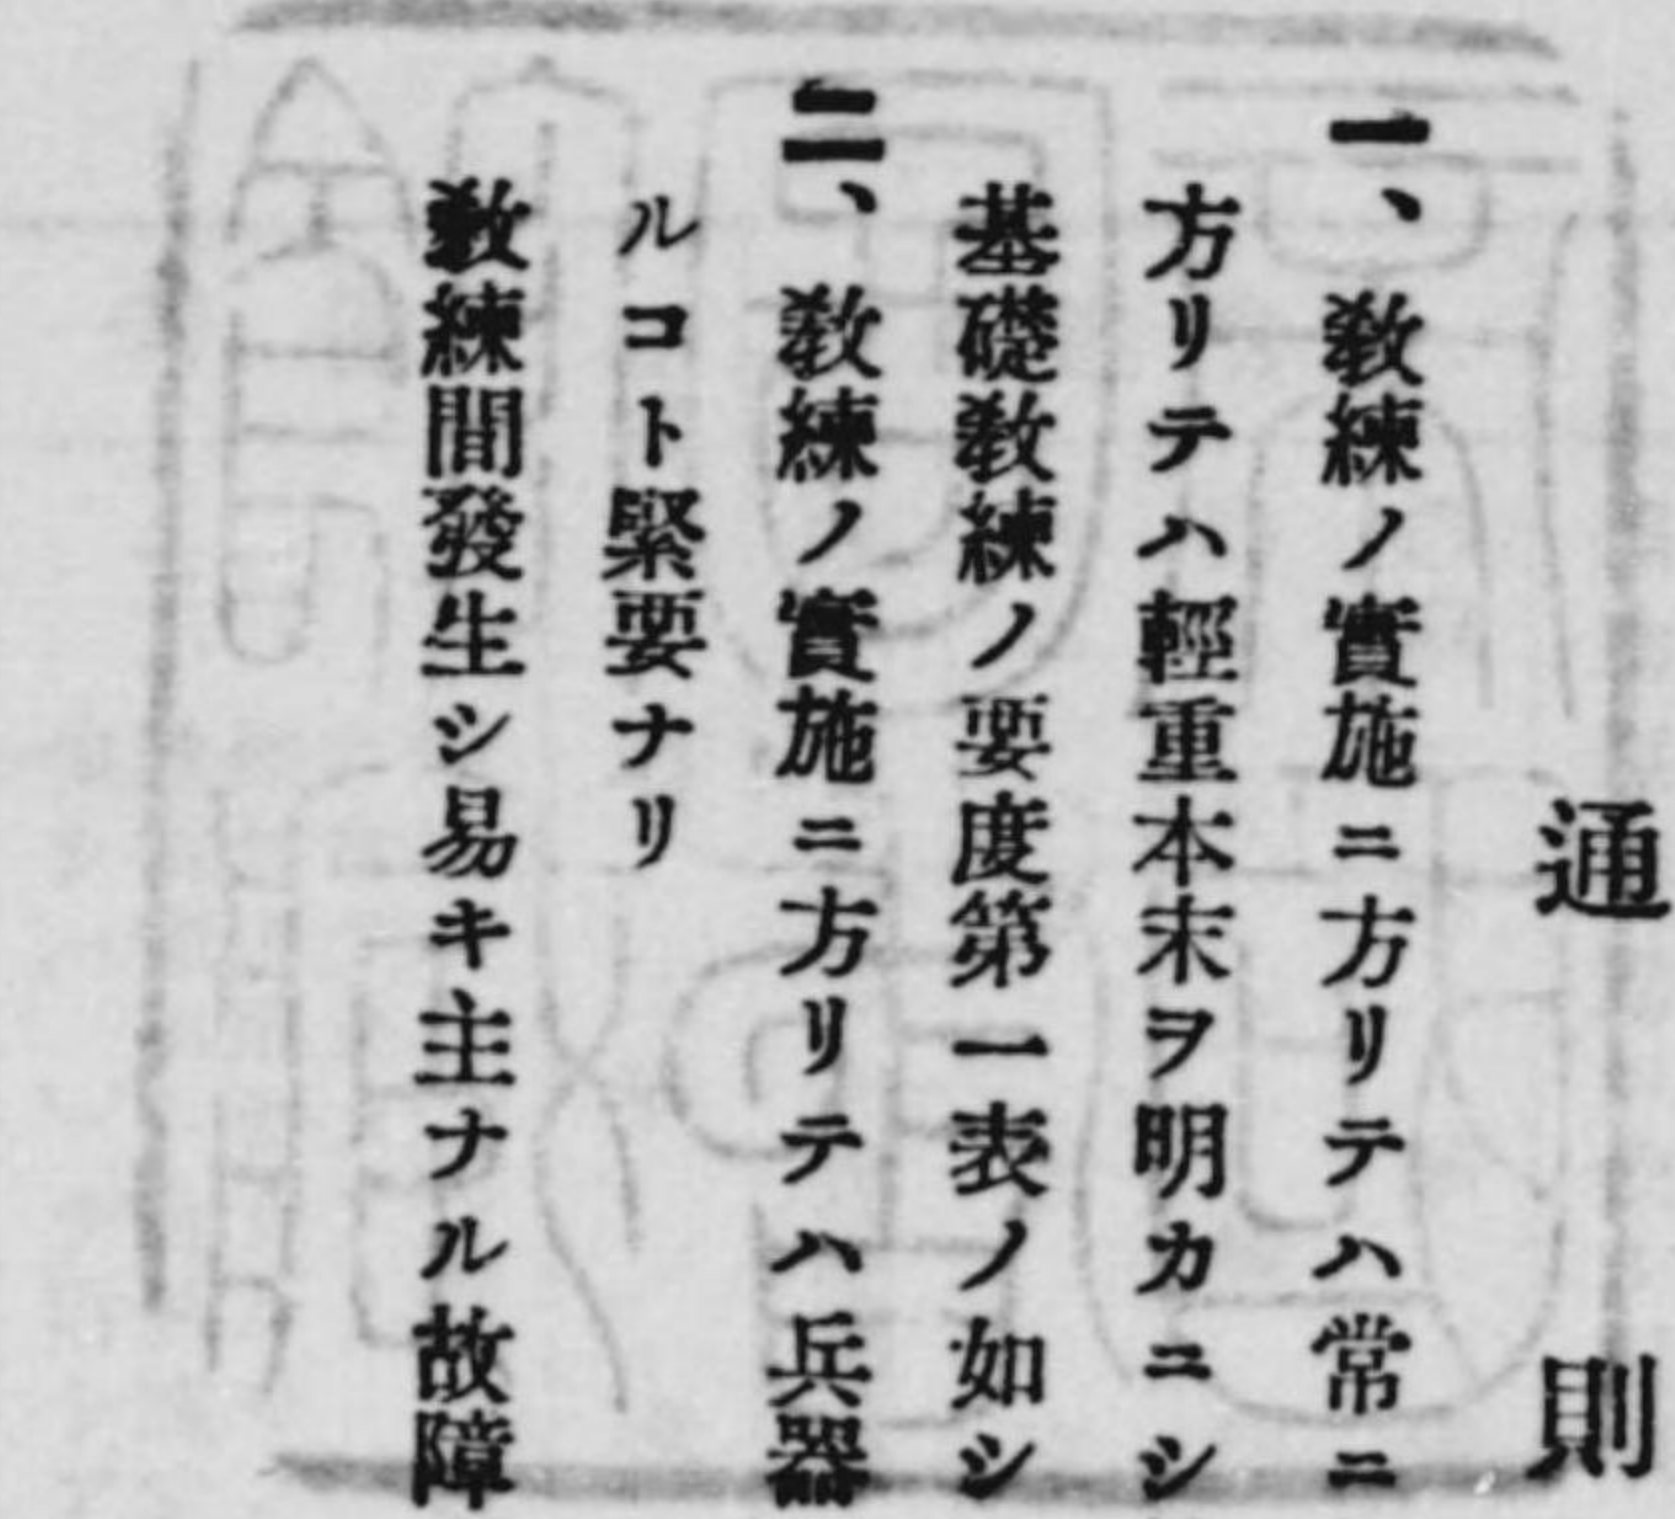 通則
一、敎練ノ實施ニ方リテハ常ニ
方リテハ輕重本末ヲ明カニシ
基礎敎練ノ要度第一表ノ如シ
二、敎練ノ實施ニ方リテハ兵器
ルコト緊要ナリ
敎練間發生シ易キ主ナル故障